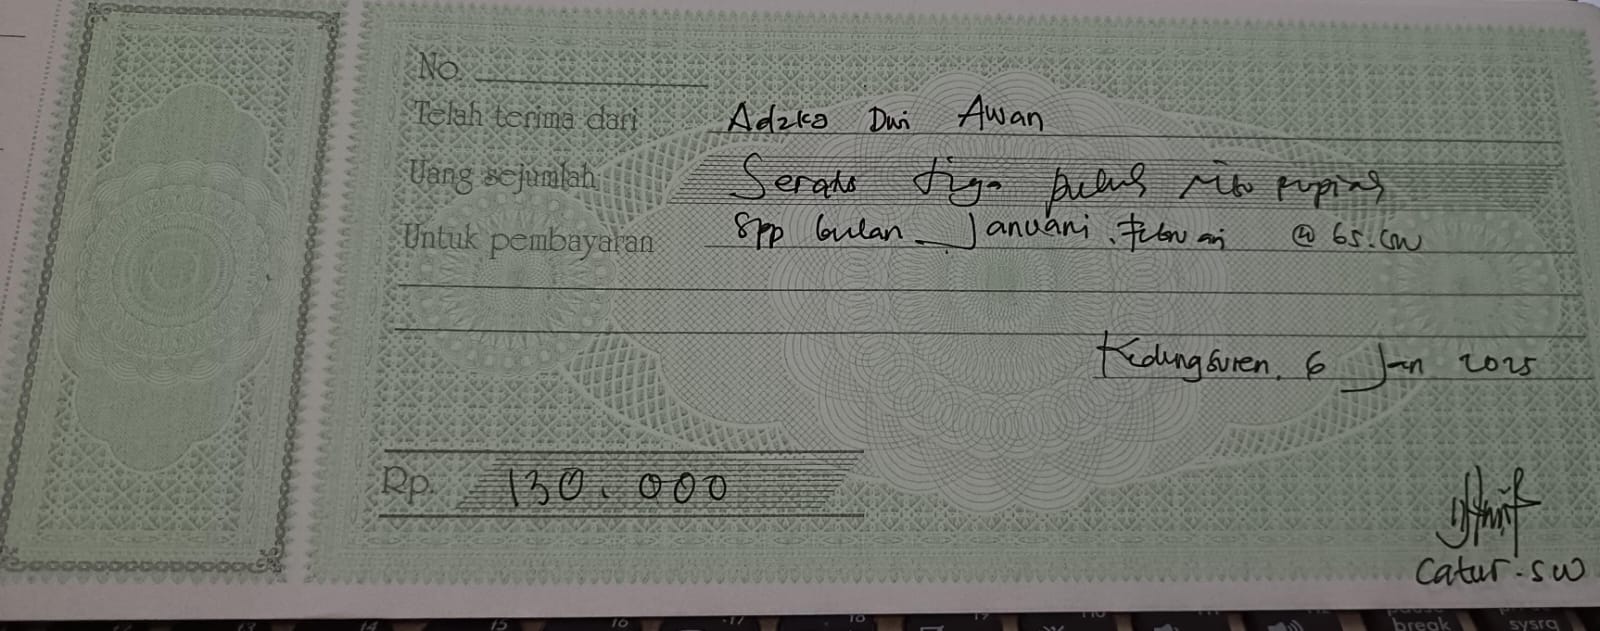 No.
Telah terima dari Adzka Dwi Awan
Uang sejumlah Seratus tiga puluh ribu rupiah
Untuk pembayaran Spp bulan Januari, Februari @ 65.000
Kedungsuren, 6 Jan 2025
Rp. 130.000
Catur.SW
break sysrq